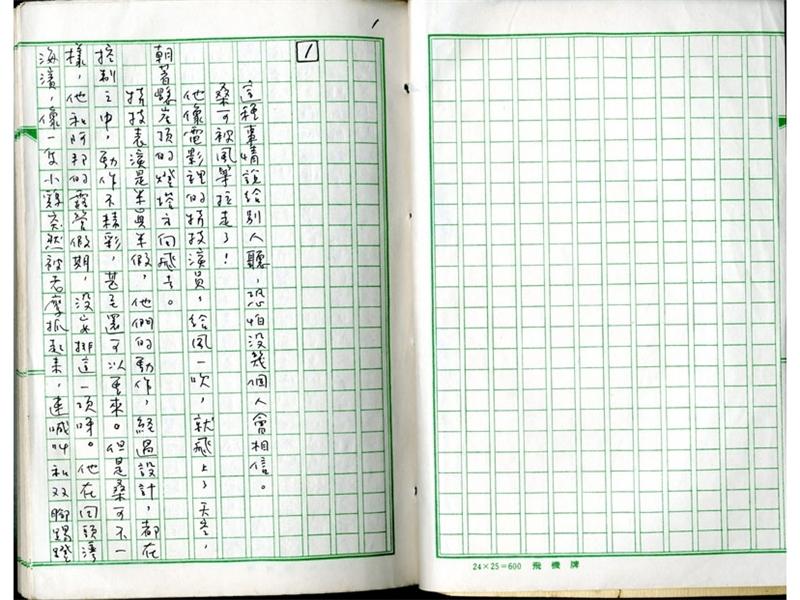 1
1
這種事情說給別人聽，恐怕沒幾個人會相信。
桑可被風箏拉走了！
他像電影裡的特技演員，給風一吹，就飛上了天空，
朝著懸崖頂的燈塔方向飛去。
特技表演是半真半假，他們的動作，經過設計，都在
控制之中，動作不精彩，甚至還可以重來。但是桑可不一
樣，他和阿邦的露營假期，沒安排這一項呀。他在回頭灣
海濱，像一隻小雞突然被老鷹抓起來，連喊叫和雙腳踢蹬
24×25=600 飛機牌